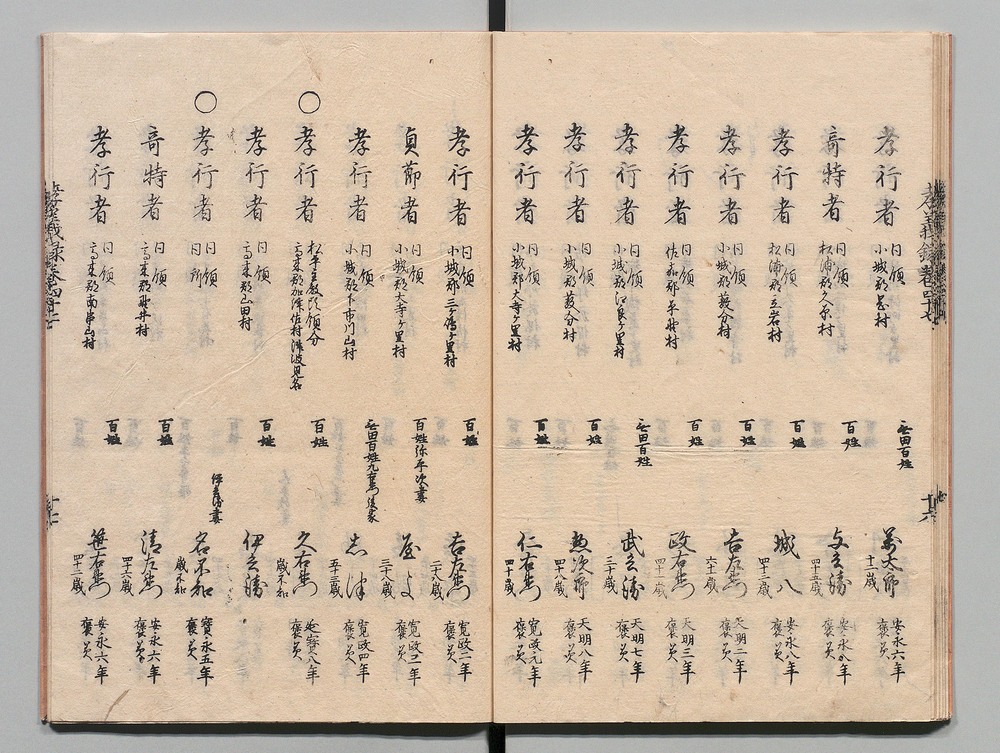 孝義録巻四十七
孝行者
同領
無田百姓
十一歳
安永六年
褒美
奇特者
同領
松浦郡久原村
百姓
与兵衛
四十五歳
褒美
孝行者
同領
松浦郡立岩村
百姓
城八
四十二歳
安永八年
褒美
孝行者
同領
小城郡
百姓
吉左衛門
六十一歳
天明二年
褒美
孝行者
同領
佐賀郡平野村
百姓
政右衛門
四十二歳
天明三年
褒美
孝行者
同領
小城郡
無田百姓
武兵衛
三十歳
天明七年
褒美
孝行者
同領
小城郡
百姓
惣次郎
四十八歳
天明八年
褒美
孝行者
同領
小城郡大寺ヶ里村
百姓
仁右衛門
四十歳
寛政元年
褒美
孝行者
同領
小城郡三ヶ
里村
百姓
吉左衛門
二十八歳
寛政二年
褒美
貞節者
同領
小城郡大寺ヶ里村
百姓弥平次妻
三十八歳
寛政二年
褒美
孝行者
同領
小城郡下市川山村
無田百姓九右衛門後家
志津
五十三歳
寛政四年
褒美
○
孝行者
松平主殿頭領分
高来郡加津佐村津波見名
百姓
久右衛門
歳不知
延宝八年
褒美
孝行者
同領
高来郡山田村
百姓
伊兵衛
○
孝行者
同領
同所
伊兵衛妻
名不知
歳不知
寶永五年
褒美
奇特者
同領
高来郡野井村
百姓
清左衛門
四十六歳
安永六年
褒美
孝行者
同領
高来郡南串山村
百姓
笹右衛門
四十二歳
安永六年
褒美